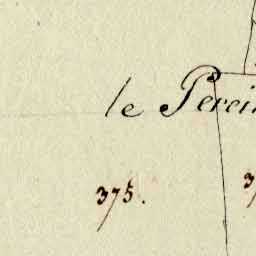 le Perei
375.
3